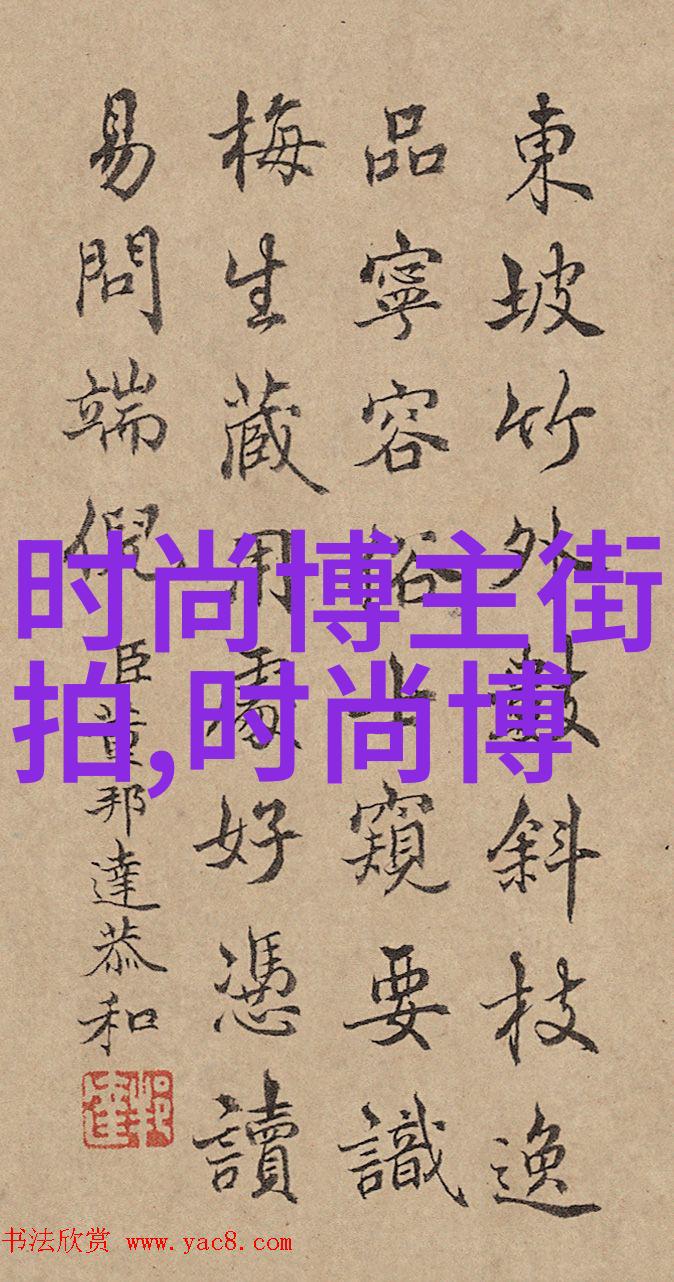 東坡竹外數斜枝逸
品寧容俗士窺要識
梅生蔵用處好憑讀
易問端倪
臣董邦達恭和
时尚博主街
拍,时尚博
书法欣赏 www.yac8.com